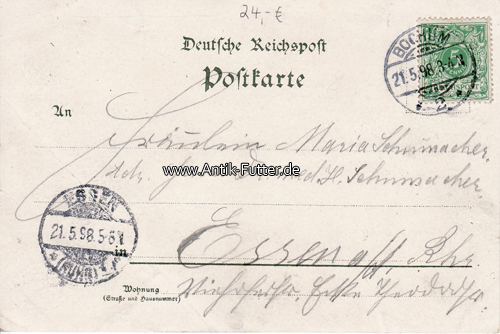 24,-€
Deutsche Reichspost
Postkarte
BOCHUM
21.5.98.3-4N
2
An
Fräulein Maria Schumacher
www.Antik-Futter.de
Adr. H. Schumacher
ESSEN
21.5.98.5-6N
(RUHR)
in
Essen a/ Rhr
Wohnung
(Straße und Hausnummer)
Ecke